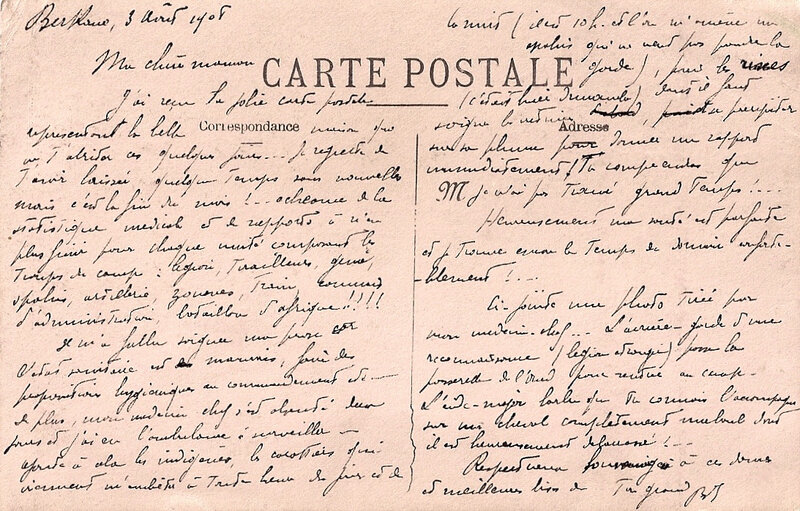 Berkane, 3 Août 1908
Ma chère maman
CARTE POSTALE
Correspondance
Adresse
J'ai reçu la jolie carte postale
représentant la belle maison qui
va t'abriter ces quelques jours... Je regrette de
t'avoir laissée quelque temps sans nouvelles
mais c'est la fin du mois !... échéance de la
statistique médicale et de rapports à n'en
plus finir pour chaque unité composant les
troupes du camp : légion, tirailleurs, génie,
spahis, artillerie, zouaves, train, commis
d'administration, bataillon d'afrique !!!!
Il m'a fallu soigner ma prose car
l'état sanitaire est mauvais, faire des
propositions hygiéniques au commandement etc —
de plus, mon médecin chef s'est absenté deux
jours et j'ai eu l'ambulance à surveiller —
ajoute à cela les indigènes, les
viennent m'embêter à toute heure du jour et de
la nuit (il est 10 h. et l'on m'amène un
spahis qui ne veut pas prendre la
garde), pour les rixes
(c'était hier dimanche) dont il faut
soigner la victime, se précipiter
sur sa plume pour donner un rapport
immédiatement. Tu comprendras que
M je n'ai pas trouvé grand temps !...
Heureusement ma santé est parfaite
et je trouve encore le temps de dormir confortа-
-blement !...
Ci-jointe une photo tirée par
mon médecin-chef... L'arrière-garde d'une
reconnaissance (légion étrangère) passe la
passerelle de l'oued pour rentrer au camp —
L'aide-major barbu que tu connais l'accompagne
sur un cheval complètement maboul dont
il est heureusement débarrassé !...
Respectueux à ces dames
et meilleures bises de Ton grand